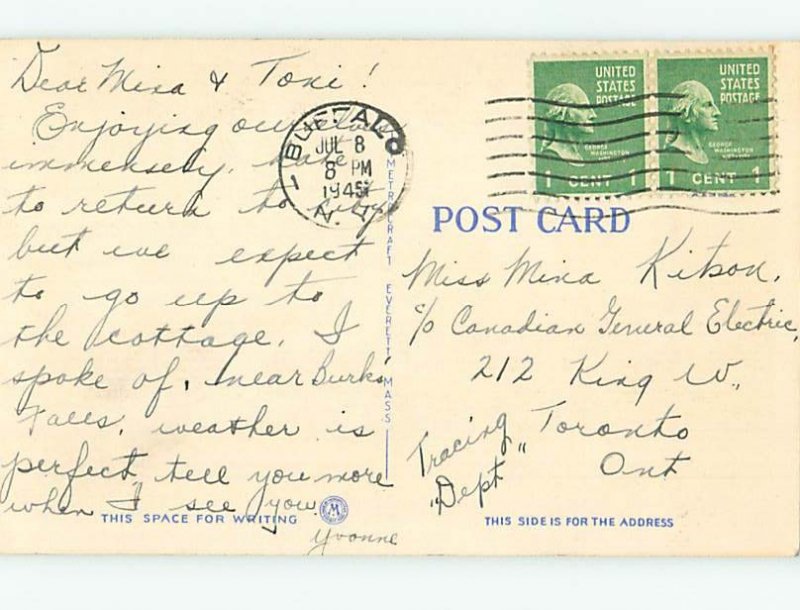 Dear Mina & Toni!
Enjoying ourselves
immensely. hate
to return to
but we expect
to go up to
the cottage, I
spoke of, near Burks
Falls, weather is
perfect, tell you more
when I see you
Yvonne
THIS SPACE FOR WRITING
METROCRAFT EVERETT, MASS
BUFFALO
JUL 8
8 PM
1945
N.Y.
1
UNITED
STATES
POSTAGE
GEORGE
WASHINGTON
1 CENT 1
UNITED
STATES
POSTAGE
GEORGE
WASHINGTON
1 CENT 1
POST CARD
Miss Mina Kitson,
c/o Canadian General Electric,
212 King W.,
Toronto
Ont
Tracing
"Dept"
M
THIS SIDE IS FOR THE ADDRESS